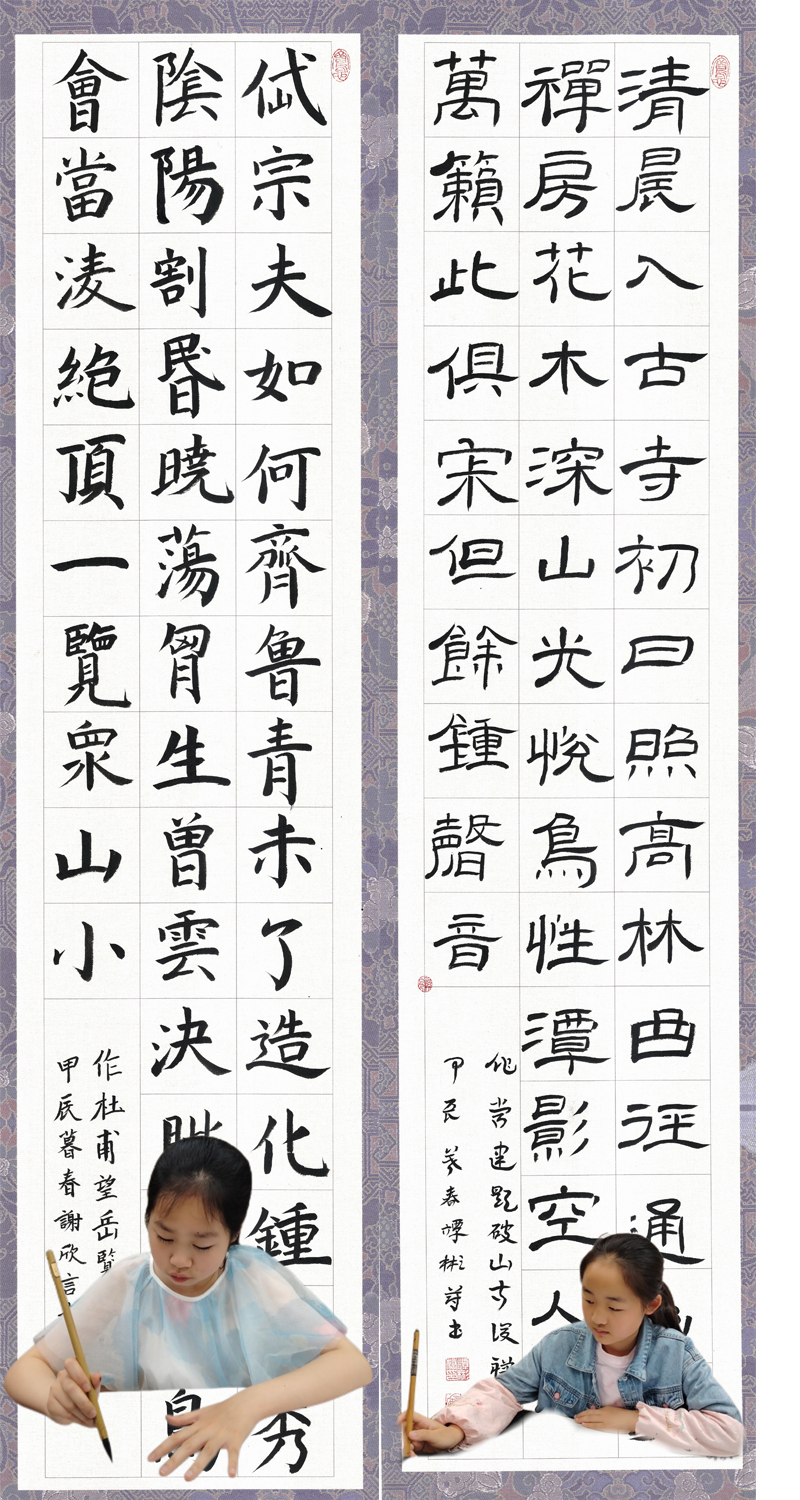 清晨入古寺初日照高林曲徑通
禪房花木深山光悅鳥性潭影空人
萬籟此俱寂但餘鍾磬音
作常建題破山寺後禪
甲辰暮春譚彬
書
岱宗夫如何齊魯青未了造化鍾
秀
陰陽割昬曉蕩胷生曾雲決
鳥
會當淩絕頂一覽衆山小
作杜甫望岳覽
甲辰暮春謝欣言